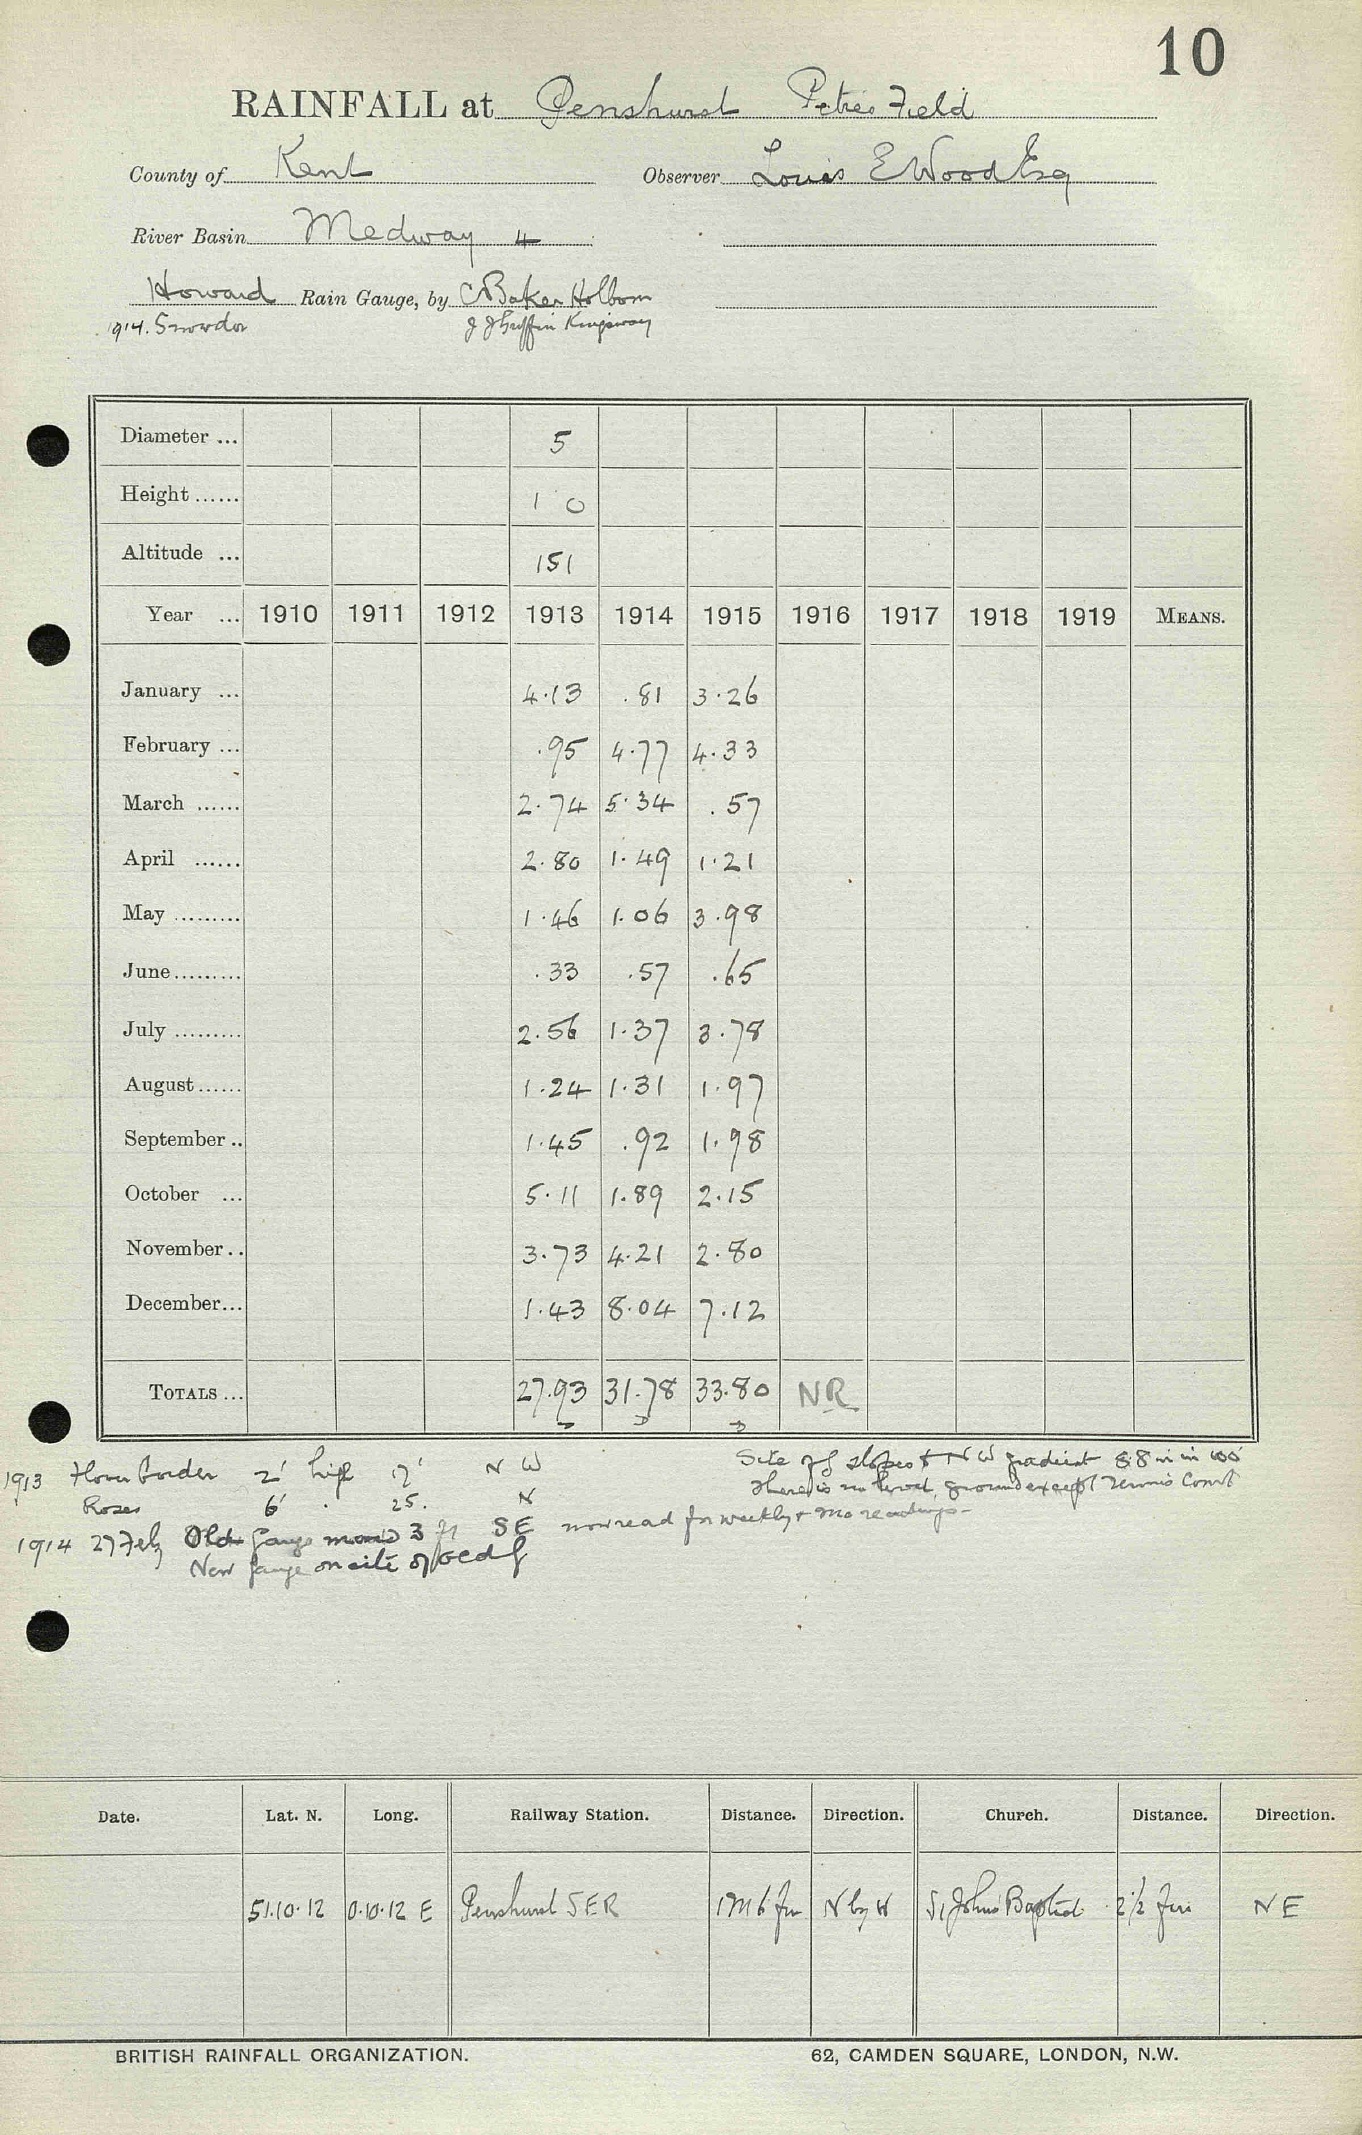 10
RAINFALL at Penshurst Petres Field
County of Kent Observer Louis E Wood Esq
River Basin Medway 4
Howard Rain Gauge, by C Baker Holborn
1914. Snowdon J J Griffin Kingsway
Diameter ... 5
Height ...... 1 0
Altitude ... 151
Year ... 1910 1911 1912 1913 1914 1915 1916 1917 1918 1919 MEANS.
January ... 4.13 .81 3.26
February ... .95 4.77 4.33
March ...... 2.74 5.34 .57
April ...... 2.80 1.49 1.21
May ......... 1.46 1.06 3.98
June ......... .33 .57 .65
July ......... 2.56 1.37 3.78
August ...... 1.24 1.31 1.97
September .. 1.45 .92 1.98
October ... 5.11 1.89 2.15
November .. 3.73 4.21 2.80
December ... 1.43 8.04 7.12
TOTALS ... 27.93 31.78 33.80 NR
1913 Flower border 2' high 17' NW Site of g slopes to NW gradient 8.8 in in 100'
Roses 6' . 25. N There is no level ground except Tennis Court
1914 27 Feb Old gauge moved 3 ft SE now read for weekly & mo readings
New gauge on site of old g
Date. Lat. N. Long. Railway Station. Distance. Direction. Church. Distance. Direction.
51.10.12 0.10.12 E Penshurst SER 1M 6 fur N by W St Johns Baptist 2½ fur NE
BRITISH RAINFALL ORGANIZATION. 62, CAMDEN SQUARE, LONDON, N.W.